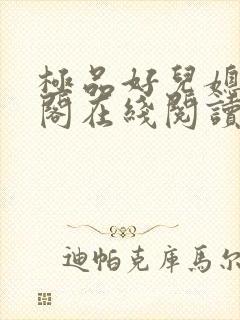 極品好兒媳
閣在綫閱讀
迪帕克庫馬尔